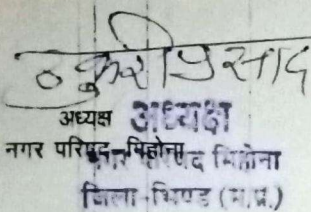 ठाकुरी प्रसाद
अध्यक्ष अध्यक्ष
नगर परिषद मिहोना नगर परिषद मिहोना
जिला-भिण्ड (म.प्र.)